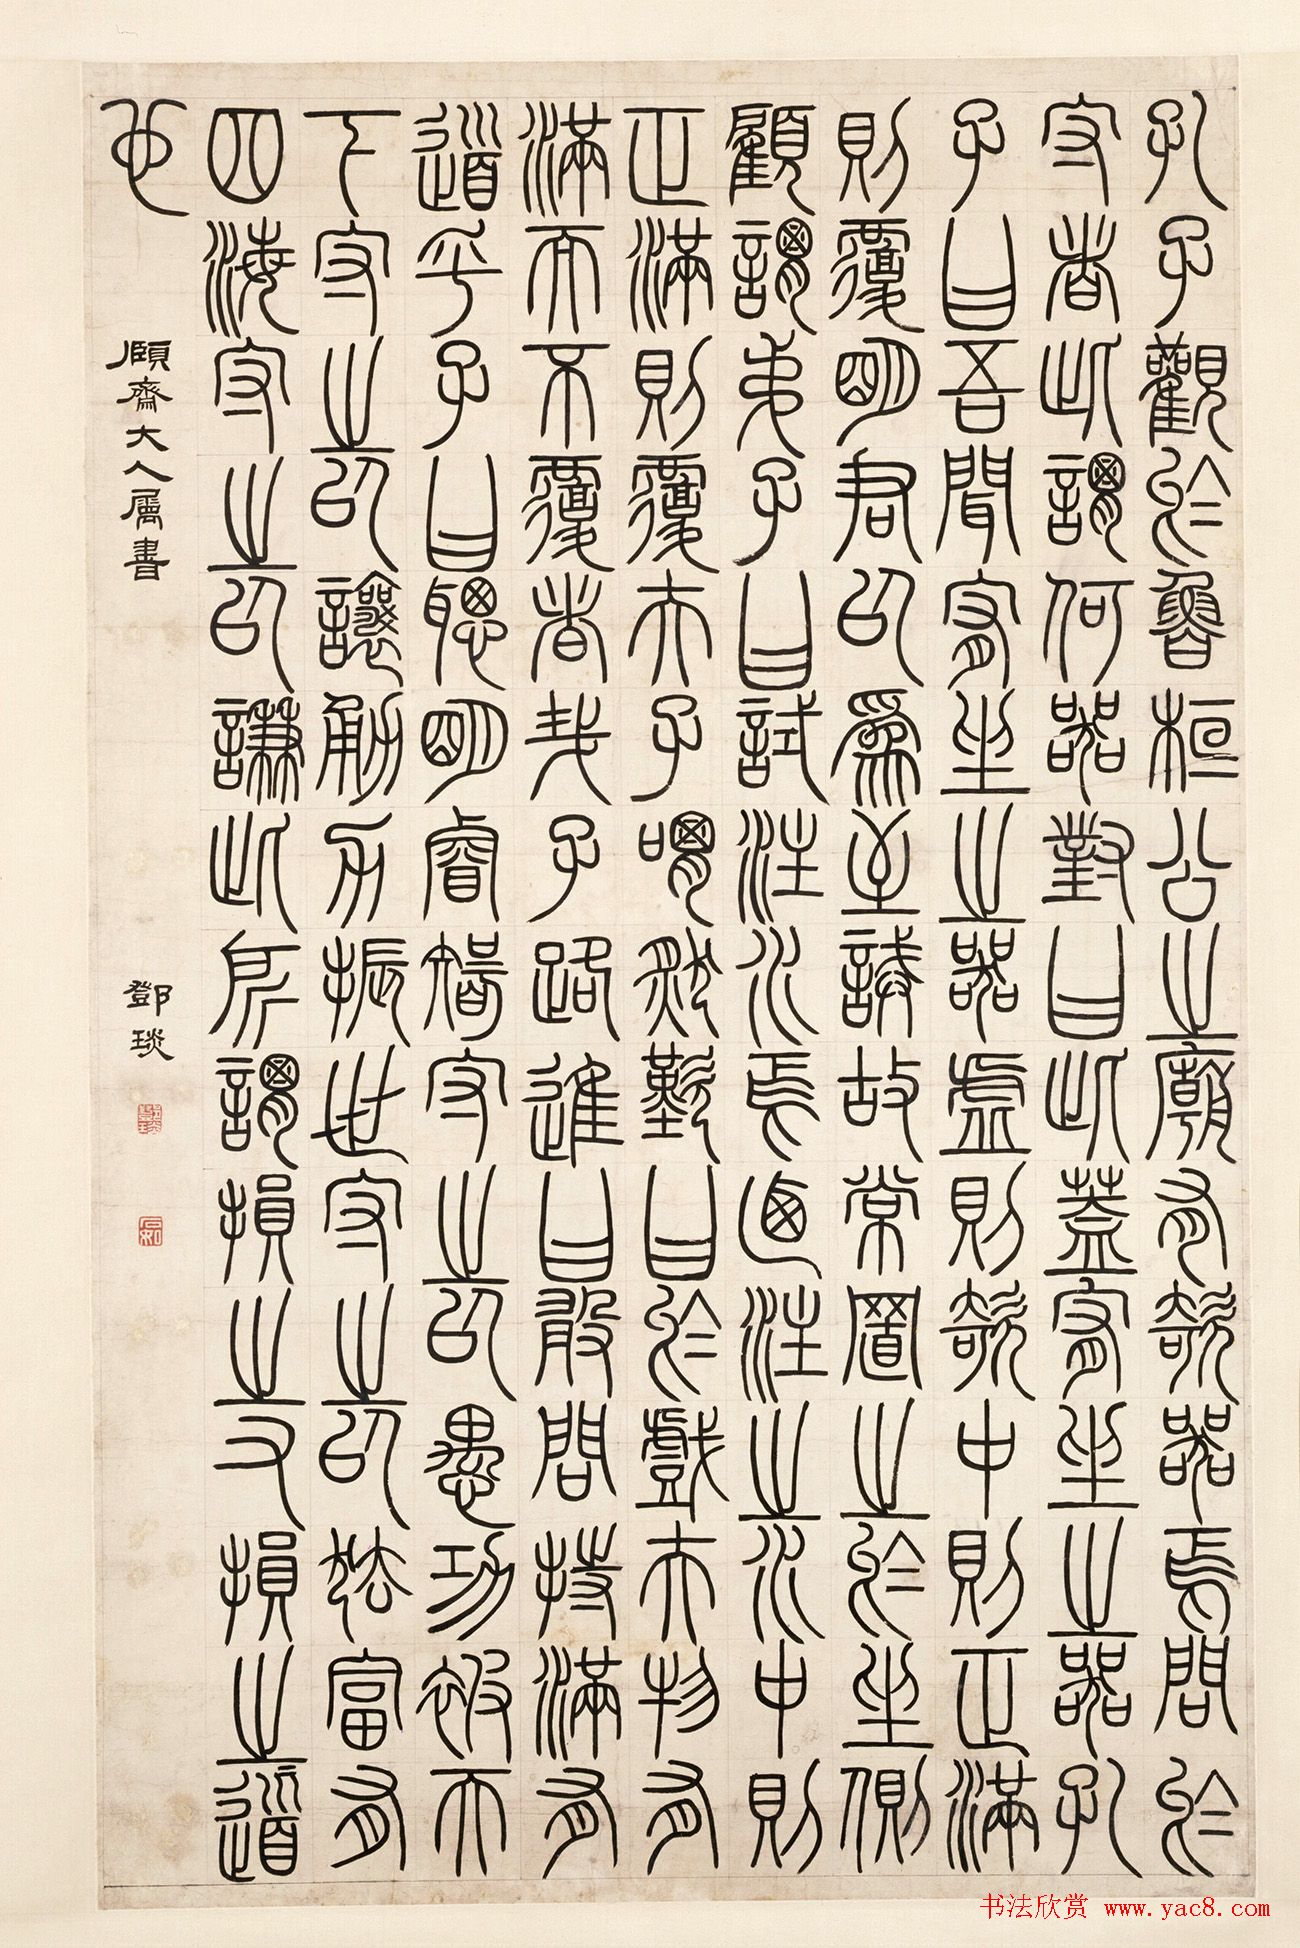 孔子觀於魯桓公之廟有欹器焉問於
守者此謂何器對曰此蓋宥坐之器孔
子曰吾聞宥坐之器虛則欹中則正滿
則覆明君以爲至誡故常置之於坐側
顧謂弟子曰試注水焉迺注之水中則
正滿則覆夫子喟然歎曰於戲夫物有
滿而不覆者哉子路進曰敢問持滿有
道乎子曰聰明睿智守之以愚功被天
下守之以讓勇力振世守之以怯富有
四海守之以謙此所謂損之又損之道
也
頤齋大人属書
鄧琰
石如
书法欣赏 www.yac8.com